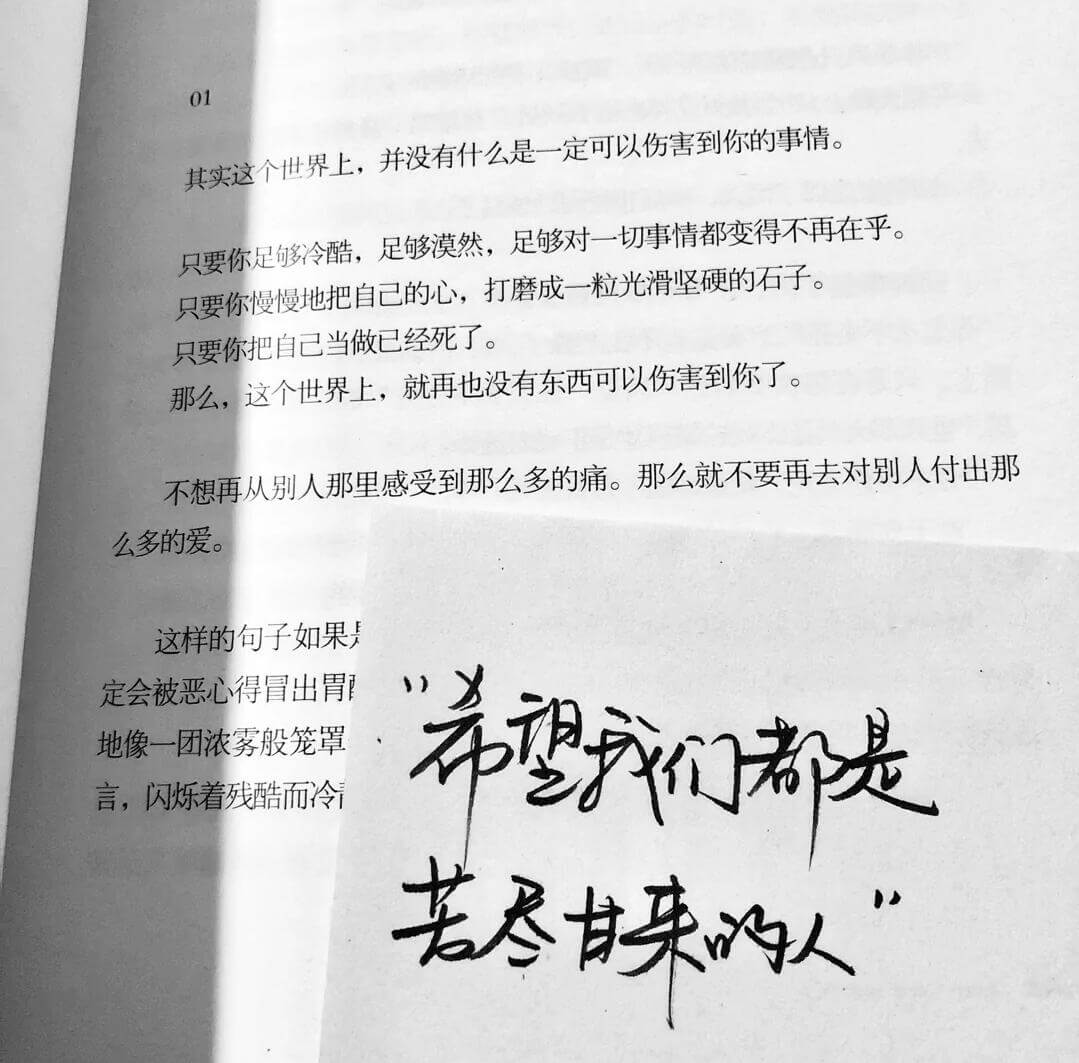 01
其实这个世界上，并没有什么是一定可以伤害到你的事情。
只要你足够冷酷，足够漠然，足够对一切事情都变得不再在乎。
只要你慢慢地把自己的心，打磨成一粒光滑坚硬的石子。
只要你把自己当做已经死了。
那么，这个世界上，就再也没有东西可以伤害到你了。
不想再从别人那里感受到那么多的痛。那么就不要再去对别人付出那
么多的爱。
这样的句子如果
定会被恶心得冒出胃
地像一团浓雾般笼罩
言，闪烁着残酷而冷
“希望我们都是
苦尽甘来的人”